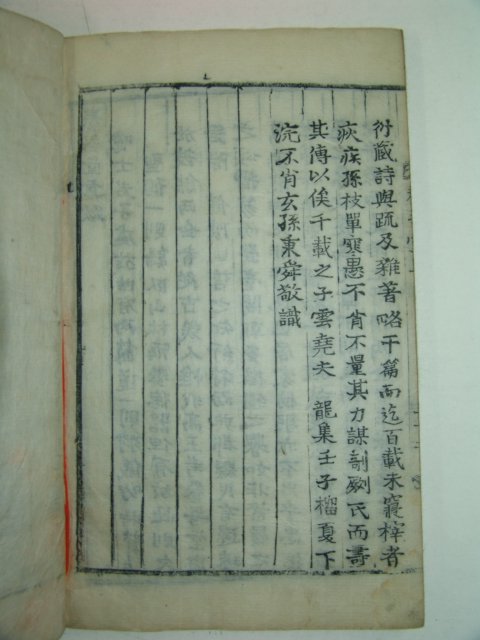 衍蔵詩與疏及雜著略干篇而迄百載未寢梓者
疚疾孫枝單寒愚不肖不量其力謀剞劂氏而壽
其傳以俟千載之子雲堯夫 龍集壬子榴夏下
浣不肖玄孫秉舜敬識